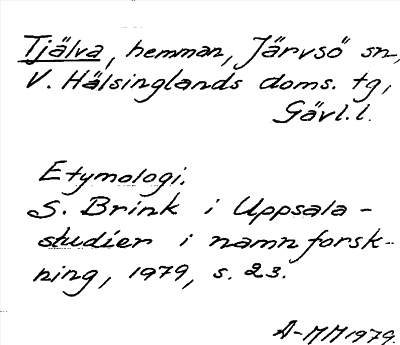 Tjälva, hemman, Järvsö sn,
V. Hälsinglands doms. tg,
Gävl.l.
Etymologi.
S. Brink i Uppsala-
studier i namnforsk-
ning, 1979, s. 23.
A-MM 1979.